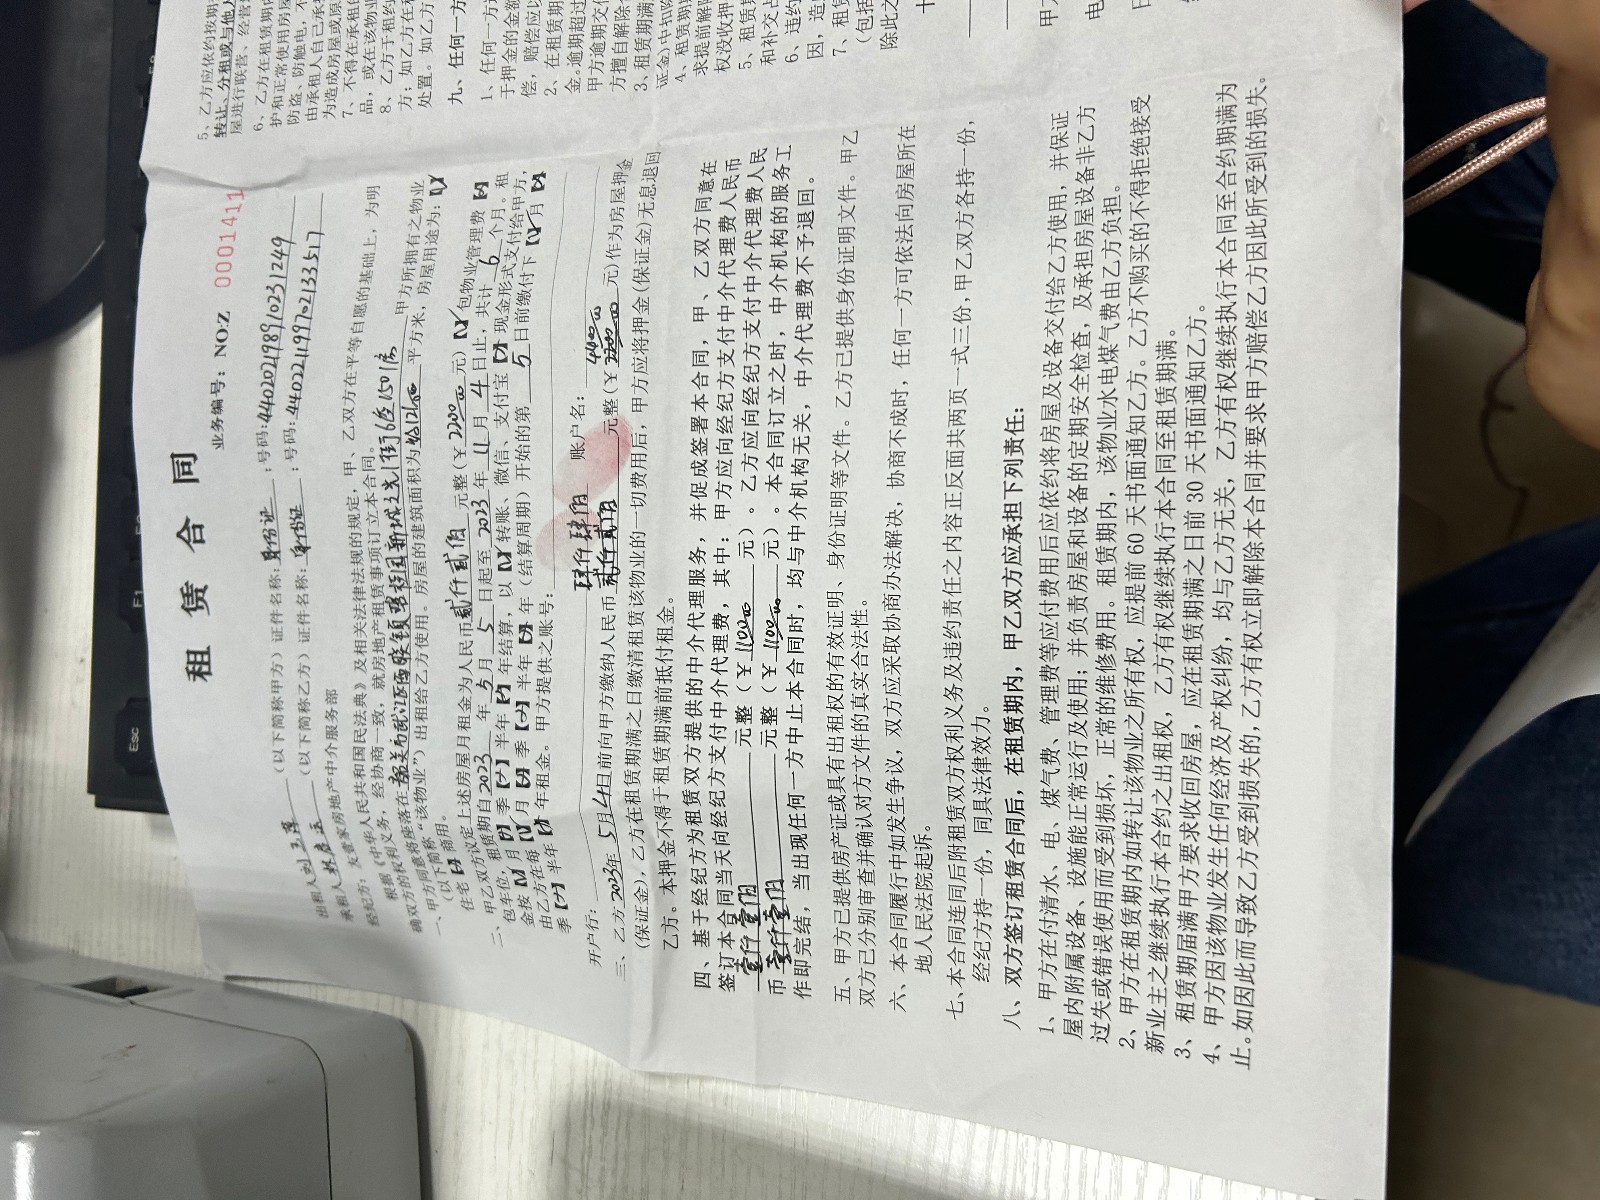 租 赁 合 同
业务编号：NO:Z 0001411
出租人（以下简称甲方）证件名称：身份证；号码：440202198910231249
承租人（以下简称乙方）证件名称：身份证；号码：440221199702133517
经纪方：友壹家房地产中介服务部
根据《中华人民共和国民法典》及相关法律法规的规定，甲、乙双方在平等自愿的基础上，为明
确双方的权利义务，经协商一致，就房地产租赁事项订立本合同。
一、甲方同意将座落在 甲方所拥有之物业
（以下简称“该物业”）出租给乙方使用。房屋的建筑面积为 平方米，房屋用途为：【√】
住宅【-】商用。
二、甲乙双方议定上述房屋月租金为人民币贰仟贰佰元整（￥2200.00元）【√】包物业管理费【-】
包车位，租赁期自2023年5月5日起至2023年11月4日止，共计6个月。租
金按【√】月【-】季【-】半年【-】年结算，以【√】转账、微信、支付宝【-】现金形式支付给甲方，
由乙方在每【√】月【-】季【-】半年【-】年（结算周期）开始的第5日前缴付下【√】月【-】
季【-】半年【-】年租金。甲方提供之账号：
开户行： 账户名：
三、乙方2023年5月4日前向甲方缴纳人民币 肆仟肆佰 元整（￥ 4400.00 元)作为房屋押金
(保证金)，乙方在租赁期满之日缴清租赁该物业的一切费用后，甲方应将押金(保证金)无息退回
乙方。本押金不得于租赁期满前抵付租金。
四、基于经纪方为租赁双方提供的中介代理服务，并促成签署本合同，甲、乙双方同意在
签订本合同当天向经纪方支付中介代理费，其中：甲方应向经纪方支付中介代理费人民币
壹仟壹佰 元整（￥1100.00元）。乙方应向经纪方支付中介代理费人民
币 壹仟壹佰 元整（￥1100.00元）。本合同订立之时，中介机构的服务工
作即完结，当出现任何一方中止本合同时，均与中介机构无关，中介代理费不予退回。
五、甲方已提供房产证或具有出租权的有效证明、身份证明等文件。乙方已提供身份证明文件。甲乙
双方已分别审查并确认对方文件的真实合法性。
六、本合同履行中如发生争议，双方应采取协商办法解决，协商不成时，任何一方可依法向房屋所在
地人民法院起诉。
七、本合同连同后附租赁双方权利义务及违约责任之内容正反面共两页一式三份，甲乙双方各持一份，
经纪方持一份，同具法律效力。
八、双方签订租赁合同后，在租赁期内，甲乙双方应承担下列责任：
1、甲方在付清水、电、煤气费、管理费等应付费用后应依约将房屋及设备交付给乙方使用，并保证
屋内附属设备、设施能正常运行及使用；并负责房屋和设备的定期安全检查，及承担房屋设备非乙方
过失或错误使用而受到损坏，正常的维修费用。租赁期内，该物业水电煤气费由乙方负担。
2、甲方在租赁期内如转让该物业之所有权，应提前 60 天书面通知乙方。乙方不购买的不得拒绝接受
新业主之继续执行本合约之出租权，乙方有权继续执行本合同至租赁期满。
3、租赁期届满甲方要求收回房屋，应在租赁期满之日前 30 天书面通知乙方。
4、甲方因该物业发生任何经济及产权纠纷，均与乙方无关，乙方有权继续执行本合同至合约期满为
止。如因此而导致乙方受到损失的，乙方有权立即解除本合同并要求甲方赔偿乙方因此所受到的损失。
5、乙方应依约按期
转让、分租或与他人
屋进行联营、经营
6、乙方在租赁期内
护和正常使用房屋
防盗、防触电，不
由承租人自己承
为造成房屋或原
7、不得在承租
品，或在该物业
8、乙方于租约
方；如乙方在
处置。如乙方
九、任何一方
1、任何一方
于押金的金额
偿，赔偿应以
2、在租赁期
金。逾期超过
甲方逾期交
方擅自解除
3、租赁期满
证金)中扣除
4、租赁期
求提前解
权没收押
5、租赁期
和补交
6、违约
因，造
7、租
（包括
除此之
Esc
F1